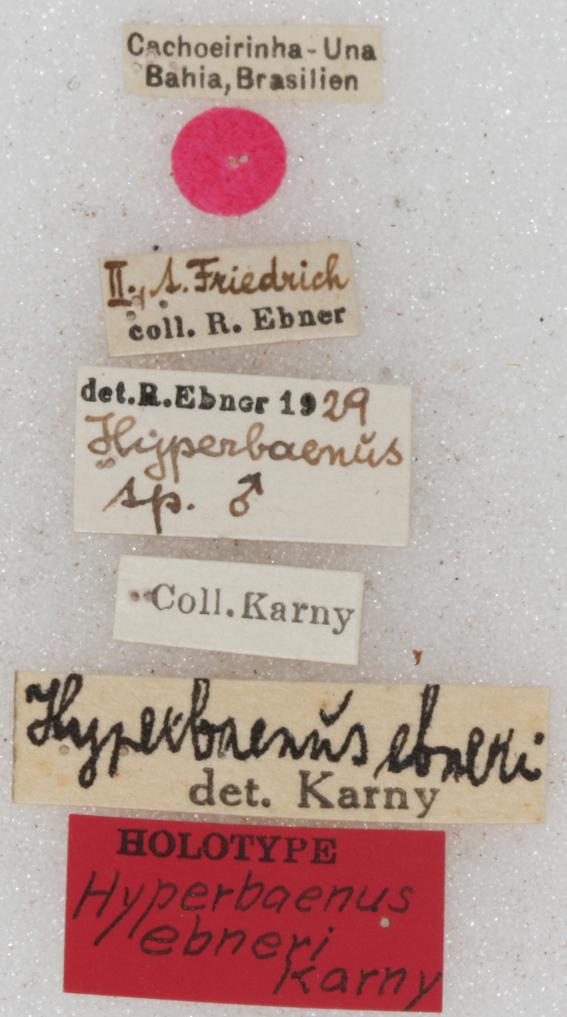 Cachoeirinha-Una
Bahia, Brasilien
II. s. Friedrich
coll. R. Ebner
det. R. Ebner 1929
Hyperbaenŭs
sp. ♂
Coll. Karny
Hyperbaenŭs ebneri
det. Karny
HOLOTYPE
Hyperbaenus
ebneri
Karny